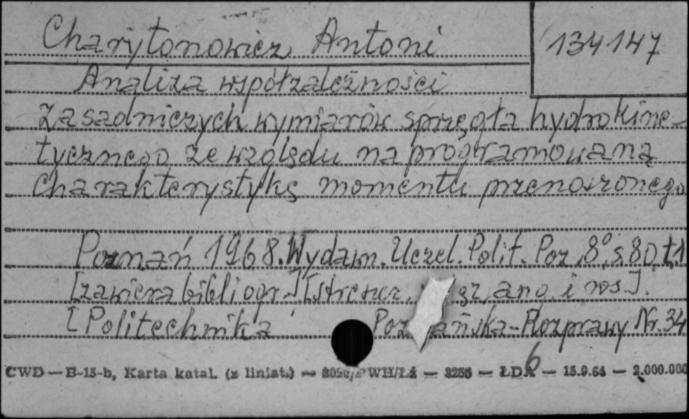 Charytonowicz Antoni
134147
Analiza współzależności
zasadniczych wymiarów sprzęgła hydrokine-
tycznego ze względu na programowaną
charakterystykę momentu przenoszonego
Poznań 1968. Wydam. Uczel. Polit. Poz. 8° s. 80, t. 1
[zawiera bibliogr.] [streszcz. ang. i ros].
[Politechnika Poznańska - Rozprawy Nr. 34
CWD — B-15-b, Karta katal. (z liniat.) — PWH/Łź — 3256 — ŁDA — 15.9.64 — 2.000.000
6